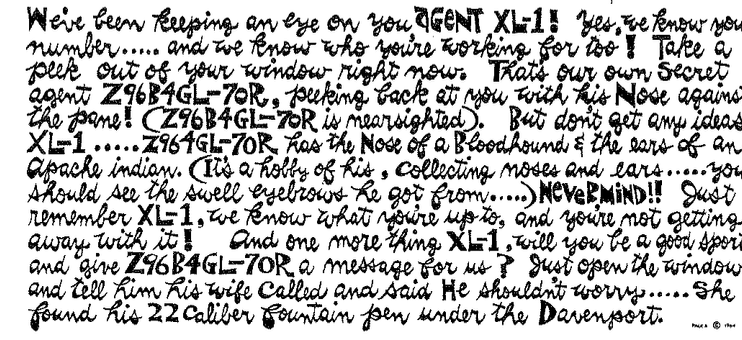 We've been keeping an eye on you AGENT XL-1! Yes, we know you
number..... and we know who you're working for too! Take a
peek out of your window right now. That's our own Secret
agent Z96B4GL-70R, peeking back at you with his Nose agains
the pane! (Z96B4GL-70R is nearsighted). But don't get any ideas
XL-1.....Z964GL-70R has the Nose of a Bloodhound & the ears of an
Apache indian. (It's a hobby of his, collecting noses and ears.....you
should see the swell eyebrows he got from.....) NEVERMIND!! Just
remember XL-1, we know what you're up to, and you're not getting
away with it! And one more thing XL-1, will you be a good spor
and give Z96B4GL-70R a message for us? Just open the window
and tell him his wife called and said He shouldn't worry.....She
found his 22 Caliber fountain pen under the Davenport.
© 1964